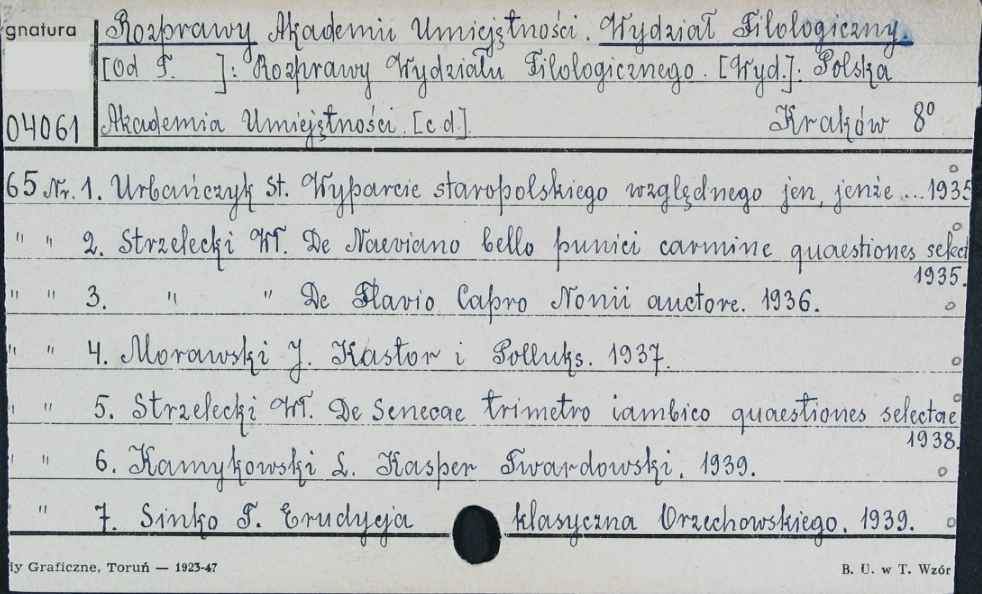 gnatura Rozprawy Akademii Umiejętności. Wydział Filologiczny.
[Od T. ]: Rozprawy Wydziału Filologicznego. [Wyd.]: Polska
04061 Akademia Umiejętności. [c d]. Kraków 8°
65 Nr. 1. Urbańczyk St. Wyparcie staropolskiego względnego jen, jenże ... 1935
" " 2. Strzelecki Wł. De Naeviano belli punici carmine quaestiones select
1935.
" " 3. " " De Flavio Capro Nonii auctore. 1936.
" " 4. Morawski J. Kastor i Polluks. 1937.
" " 5. Strzelecki Wł. De Senecae trimetro iambico quaestiones selectae
1938.
" " 6. Kamykowski L. Kasper Twardowski. 1939.
" 7. Sinko T. Erudycja klasyczna Orzechowskiego. 1939.
ły Graficzne, Toruń — 1923-47 B. U. w T. Wzór